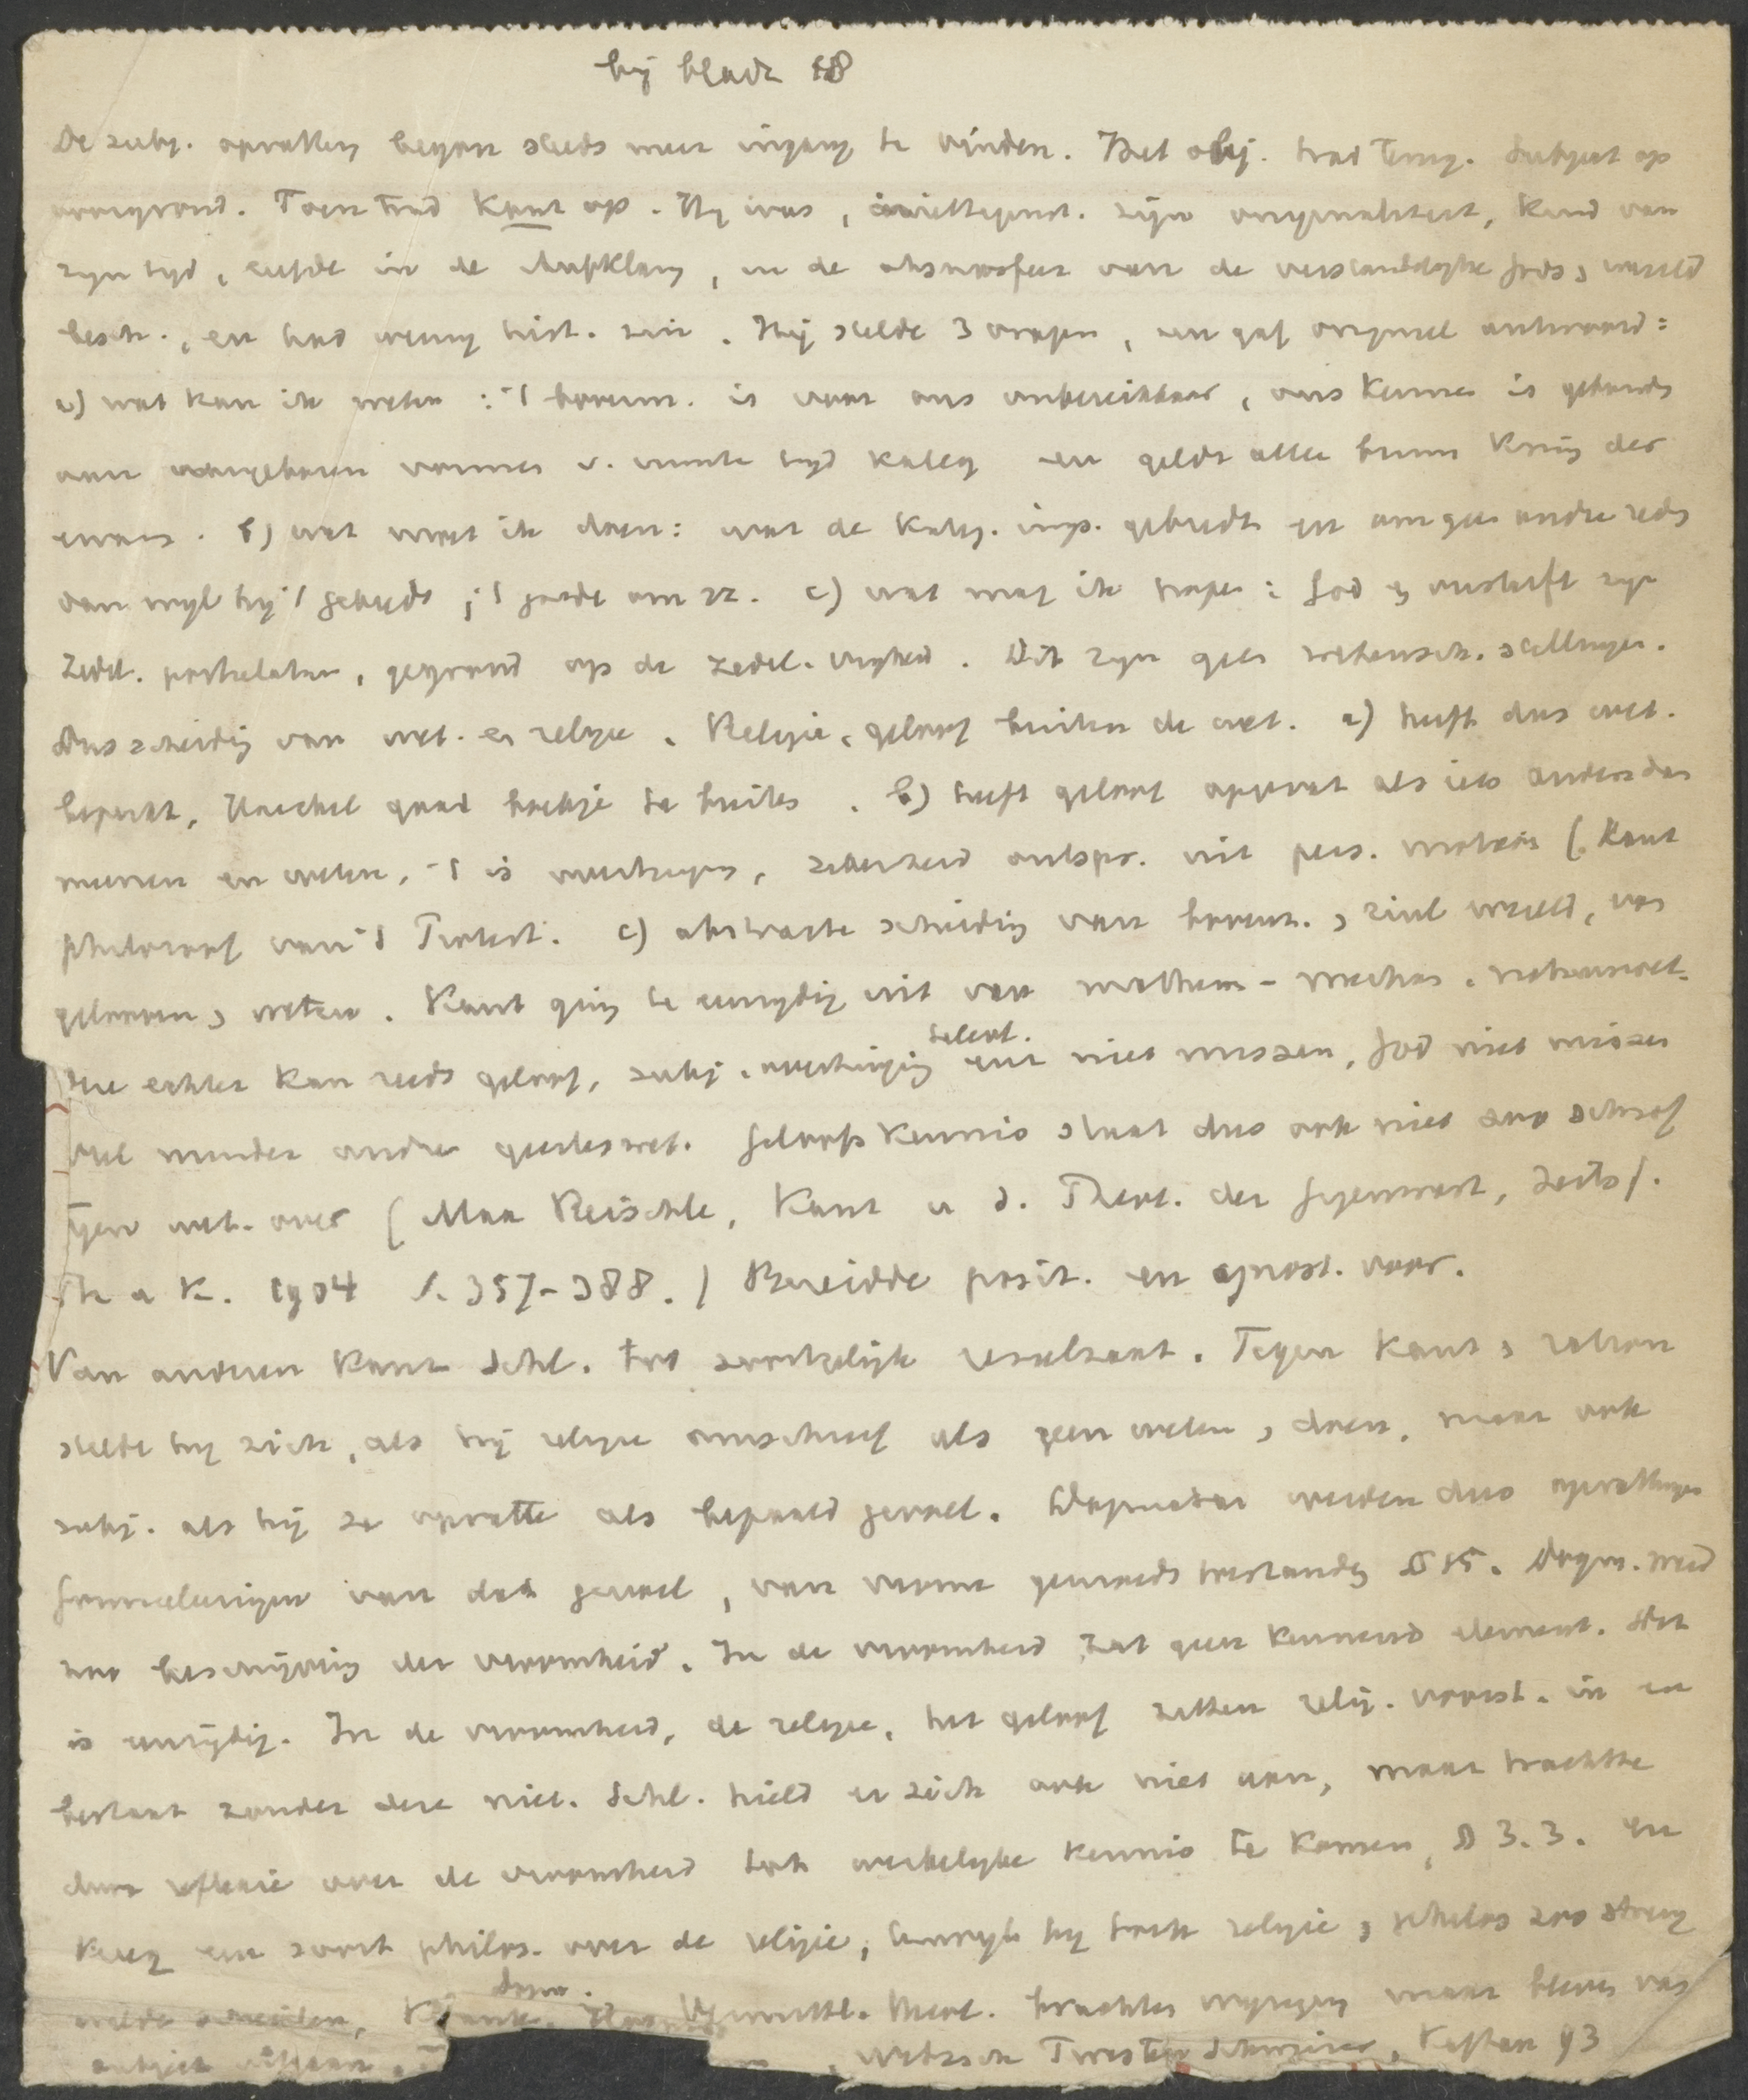 bij bladz 18
De subj. opvatting begon steeds meer ingang te vinden. Het obj. trad terug. Subject op
voorgrond. Toen trad Kant op. Hij was, niettegenst. zijn originaliteit, kind van
zijn tijd, leefde in de Aufklärung, in de atmosfeer van de verstandelijke gods, wereld
besch., en had weinig hist. zin. Hij stelde 3 vragen, en gaf origineel antwoord:
a) wat kan ik weten: 't bovenz. is voor ons onbereikbaar, ons kennen is gebonden
aan aangeboren vormen v. ruimte tijd kateg en geldt alleen binnen kring der
ervaring. b) wat moet ik doen: wat de kateg. imp. gebiedt en om geen andre reden
dan wijl hij 't gebiedt; 't goede om zz. c) wat mag ik hopen: God en onsterft zijn
zedel. postulaten, gegrond op de zedel. vrijheid. Dit zijn geen wetensch. stellingen.
Dus scheiding van wet. en religie. Religie, geloof buiten de wet. a) heeft dus wet.
beperkt, Haeckel gaat boekje te buiten. b) heeft geloof opgevat als iets anders dan
meenen en weten, 't is overtuigen, zekerheid ontspr. uit pers. motieven (Kant
philosoof van 't Protest. c) abstracte scheiding van bovenz. , zinl wereld, van
gelooven, weten. Kant ging te eenzijdig uit van mathem- mechan. natuurwet.
die echter kan reeds geloof, subj. overtuiging niet missen, God niet missen
veel minder andre geesteswet. Geloofskennis staat dus ook niet zoo schrof
tgen wet. over (Max Reischle, Kant u d. Theol. der Gegenwart, Zeits f.
Th u K. 1904 S. 357-388.) Bereidde posit. en agnost. voor.
Van anderen kant Schl. tot soortgelijk resultaat. Tegen Kant, ration
stelde hij zich, als hij religie omschreef als geen weten, doen, maar ook
subj. als hij ze opvatte als bepaald gevoel. Dogmata werden dus opvattingen
formuleringen van dat gevoel, van vrome gemoedstoestanden § 15. Dogm. werd
zoo beschrijving der vroomheid. In de vroomheid zat geen kennend element. Dit
is eenzijdig. In de vroomheid, de religie, het geloof zitten relig. voorst. in en
bestaat zonder deze niet. Schl. hield er zich ook niet aan, maar trachtte
door reflexie over de vroomheid tot werkelijke kennis te komen, § 3.3. En
kreeg een soort philos. over de religie, terwijl hij toch religie, philos zoo streng
wilde scheiden, Vermittl. theol. brachten wijziging maar bleven van
subject uitgaan. , Nitzsch Twesten Schweizer, Kaftan 93